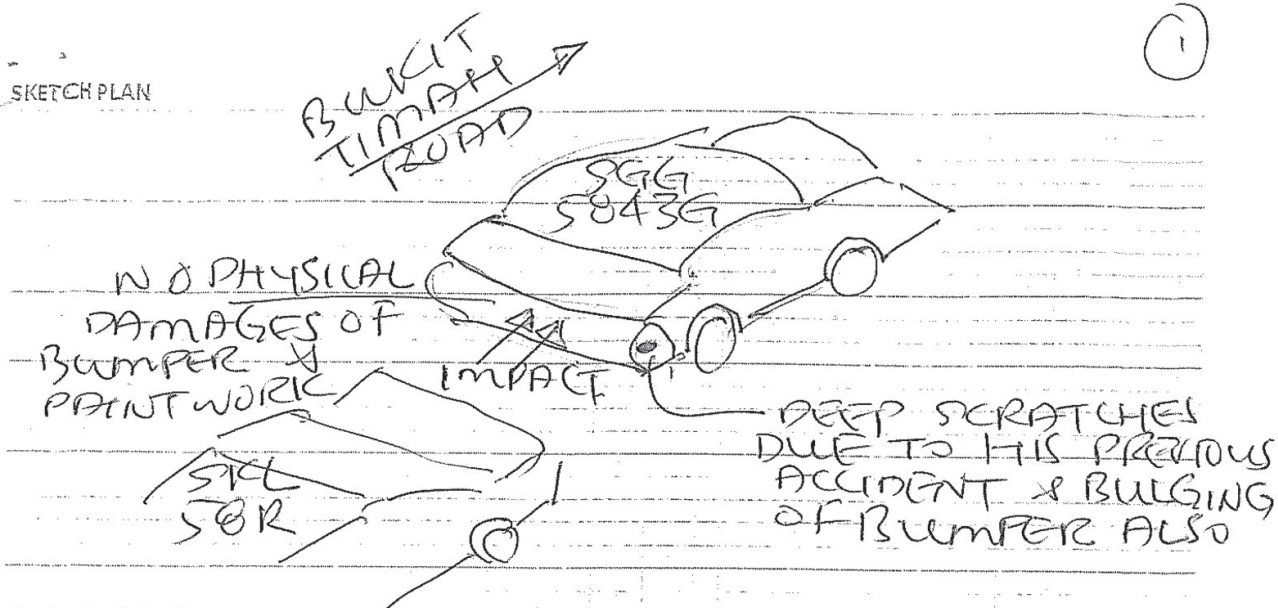 1
SKETCH PLAN
BUKIT
TIMAH
ROAD
SGG
5843G
NO PHYSICAL
DAMAGES OF
BUMPER &
PAINTWORK
IMPACT
DEEP SCRATCHES
DUE TO HIS PREVIOUS
ACCIDENT & BULGING
OF BUMPER ALSO
SKL
58R